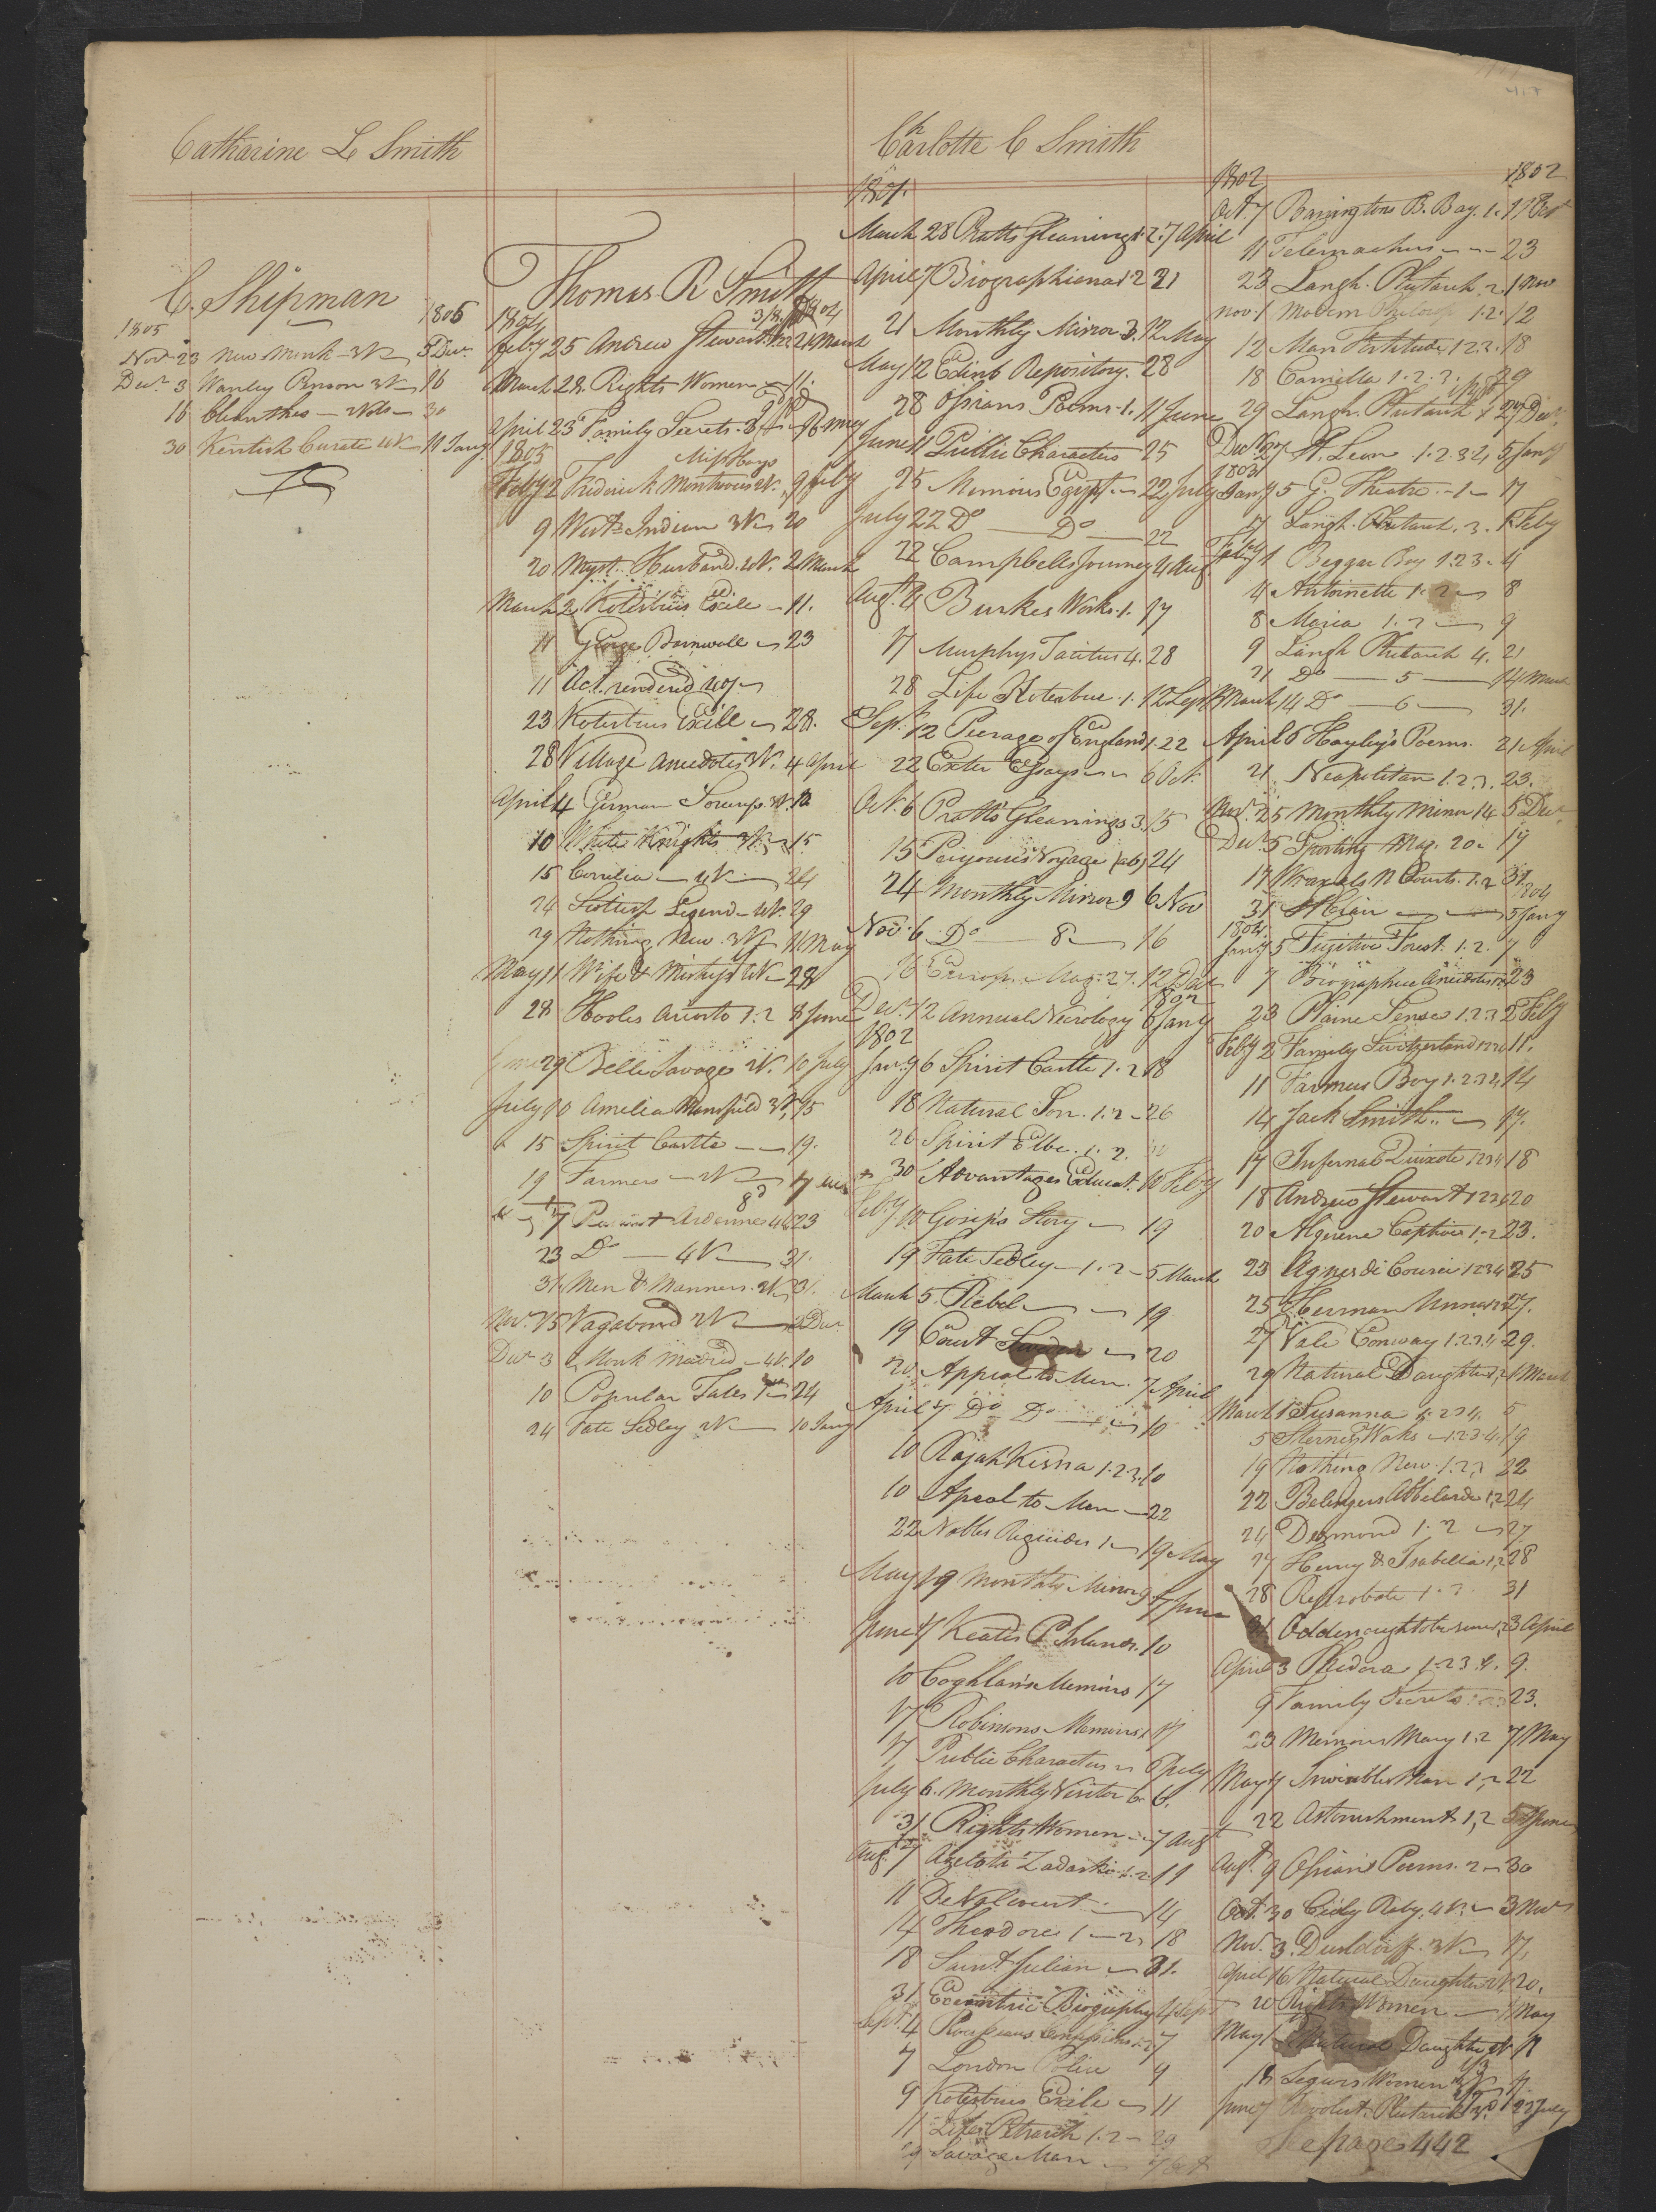 Catharine L Smith
C. Shipman
1805 1806
Nov 23 New Monk - 3V 3 Decr
Decr 3 Wanley Penson 3V 16
16 Cleanthes - 2 Vols - 30
30 Kentish Curate 4V - 11 Jany
Thomas R Smith
1804 1804
Feby 25 Andrew Stewart 21 March
March 28 Rights Women 11.
April 23 Family Secrets 16 May
1805 Miss Hays
Feby 2 Frederick Montrose 2V. 9 Feby
9 West Indian 3V 20
20 Myst. Husband 4V. 2 March
March 2 Kotzebues Exile - 11.
11 George Barnwell 23
11 Act. rendered
23 Kotzebues Exile 28.
28 Village Anecdotes 3V. 4 April
April 4 German Sorceress 3V. 10
10 White Knights 3V 15
15 Corrilia 4V 24
24 Scottish Legend - 4V. 29
29 Nothing New 3V 11 May
May 11 Wife & Mistress 4V - 28
28 Hooles Ariosto 1.2 8 June
June 29 Belle Savage 2V. 10 July
July 10 Amelia Mansfield 3V, 15
15 Spirit Castle - - 19.
19 Farmers - 2V 7
7 Ardenne 23
23 Do - 4V 31
31 Men & Manners. 31.
Nov. 15 Vagabond 2V Decr
Decr 3 Monk Madrid - 4V. 10
10 Popular Tales 24
24 Fate Sedley 2V 10 Jany
Charlotte C Smith
1801.
March 28 Pratts Gleanings 1.2. 7 April
April 7 Biographiana 1 2 21
21 Monthly Mirror 3. 12 May
May 12 Edinb Repository. 28
28 Ossians Poems. 1. 11 June
June 11 Public Characters 25
25 Memoirs Egypt 22 July
July 22 Do Do 22
22 Campbells Journey 4 Aug.
Augt 4 Burkes Works. 1. 17
17 Murphys Tacitus 4. 28
28 Life Kotzebue. 1. 12 Sept
Sept. 12 Peerage of England 1. 22
22 Exeter Essays 6 Oct.
Oct. 6 Pratts Gleanings 3. 15
15 Voyage 24
24 Monthly Mirror 9 6 Nov
Nov. 6 Do 8 16
16 Europn. Mag. 27. 12 Decr
1802
Decr. 12 Annual Necrology 6 Jany
1802
Jany 6 Spirit Castle 1.2 18
18 Natural Son. 1.2 - 26
26 Spirit Elbe. 1. 2. 30
30 Advantages Educat. 10 Feby
Feby 10 Gossips Story 19
19 Fate Sedley 1.2 - 5 March
March 5. Rebel 19
19 Court Sweden 20
20 Appeal to Men. 7 April
April 7 Do Do 10
10 Rajah Kisna 1.2.3. 10
10 Apeal to Men - 22
22 Nobles Regicides 1 - 19 May
May 19 Monthly Mirror 9 7 June
June 7 Keates P. Islands. 10
10 Coghlans Memoirs 17
17 Robinsons Memoirs 17
17 Public Characters 6 July
July 6. Monthly Visitor 6. 6.
31 Rights Women 7 Augt
Aug. 7 Zadaski 1.2 11
11 De Valcourt 14
14 Theodore 1 - 2 18
18 Saint Julian 31.
31 Eccentric Biography 4 Sept
Sept. 4 Rousseaus Confessions 7
7 London Police 9
9 Kotzebues Exile 11
11 Life Petrarch 1.2 - 29
29 Savage Man
1802 1802
Oct. 7 Barringtons B. Bay. 1. 11 Oct
11 Telemachus 23
23 Langh. Plutarch. 2. 1 Nov
Nov. 1 Modern Philosop. 1.2. 12
12 Man Fortitude 1 2 3. 18
18 Camilla 1. 2. 3. 29
29 Langh. Plutarch 27 Decr.
Decr 27 St. Leon 1.2 3 4, 5 Jany
1803
Jany 5 G. Theatre. - 1 - 17
17 Langh. Plutarch. 3. 1 Feby
Feby 1 Beggar Boy 1.2 3 - 4
4 Antoinette 1. 2 8
8 Maria 1. 2 9
9 Langh Plutarch 4. 21
21 Do 5 14 March
March 14 Do 6 31.
April 6 Hayley's Poems. 21 April
21 Neapolitan 1. 2. 3. 23.
Nov. 25 Monthly Mirror 14 5 Decr.
Decr 5 Sporting Mag. 20 - 17
17 Wraxals N Courts. 1. 2 31
31 St Clair 5 Jany
1804
Jany 5 Fugitive Forest. 1. 2. 7
7 Biographical Anecdotes 23
23 Plaine Sense 1.2 3 2 Feby
Feby 2 Family Switzerland 11.
11 Farmers Boy 1.2 3 4 14
14 Jack Smith 17.
17 Infernal Quixote 1 2 3 4 18
18 Andrew Stewart 1 2 3 4 20
20 Algerine Captive 1.2 23.
23 Agnes di Courci 1 2 3 4 25
25 Herman Unna 27.
27 Vale Conway 1 2 3 4 29.
29 Natural Daughter 1 March
March 1 Susanna 1. 2 3 4. 5
5 Sternes Works 1.2.3.4. 19
19 Nothing New. 1. 2, 3 22
22 Abbelarde 1, 2 24
24 Desmond 1. 2 27
27 Henry & Isabella 1, 2 28
28 Reprobate 1. 2. 31
31 3 April
April 3 Phedora 1.2 3.4. 9.
9 Family Secrets 23.
23 Memoirs Mary 1.2 7 May
May 7 Invisible Man 1, 2 22
22 Astonishment 1, 2 5 June
Augt. 9 Ossians Poems. 2 - 30
Oct. 30 Cicily Raby. 4V. - 3 Nov
Nov. 3. Dusseldorf. 3V 17,
April 16 Natural Daughter 2V. 20.
20 Rights Women 1 May
May 1 Natural Daughter 2V 18
18 Segurs Women
June 7 Revolut. Plutarch 22 July
See page 442